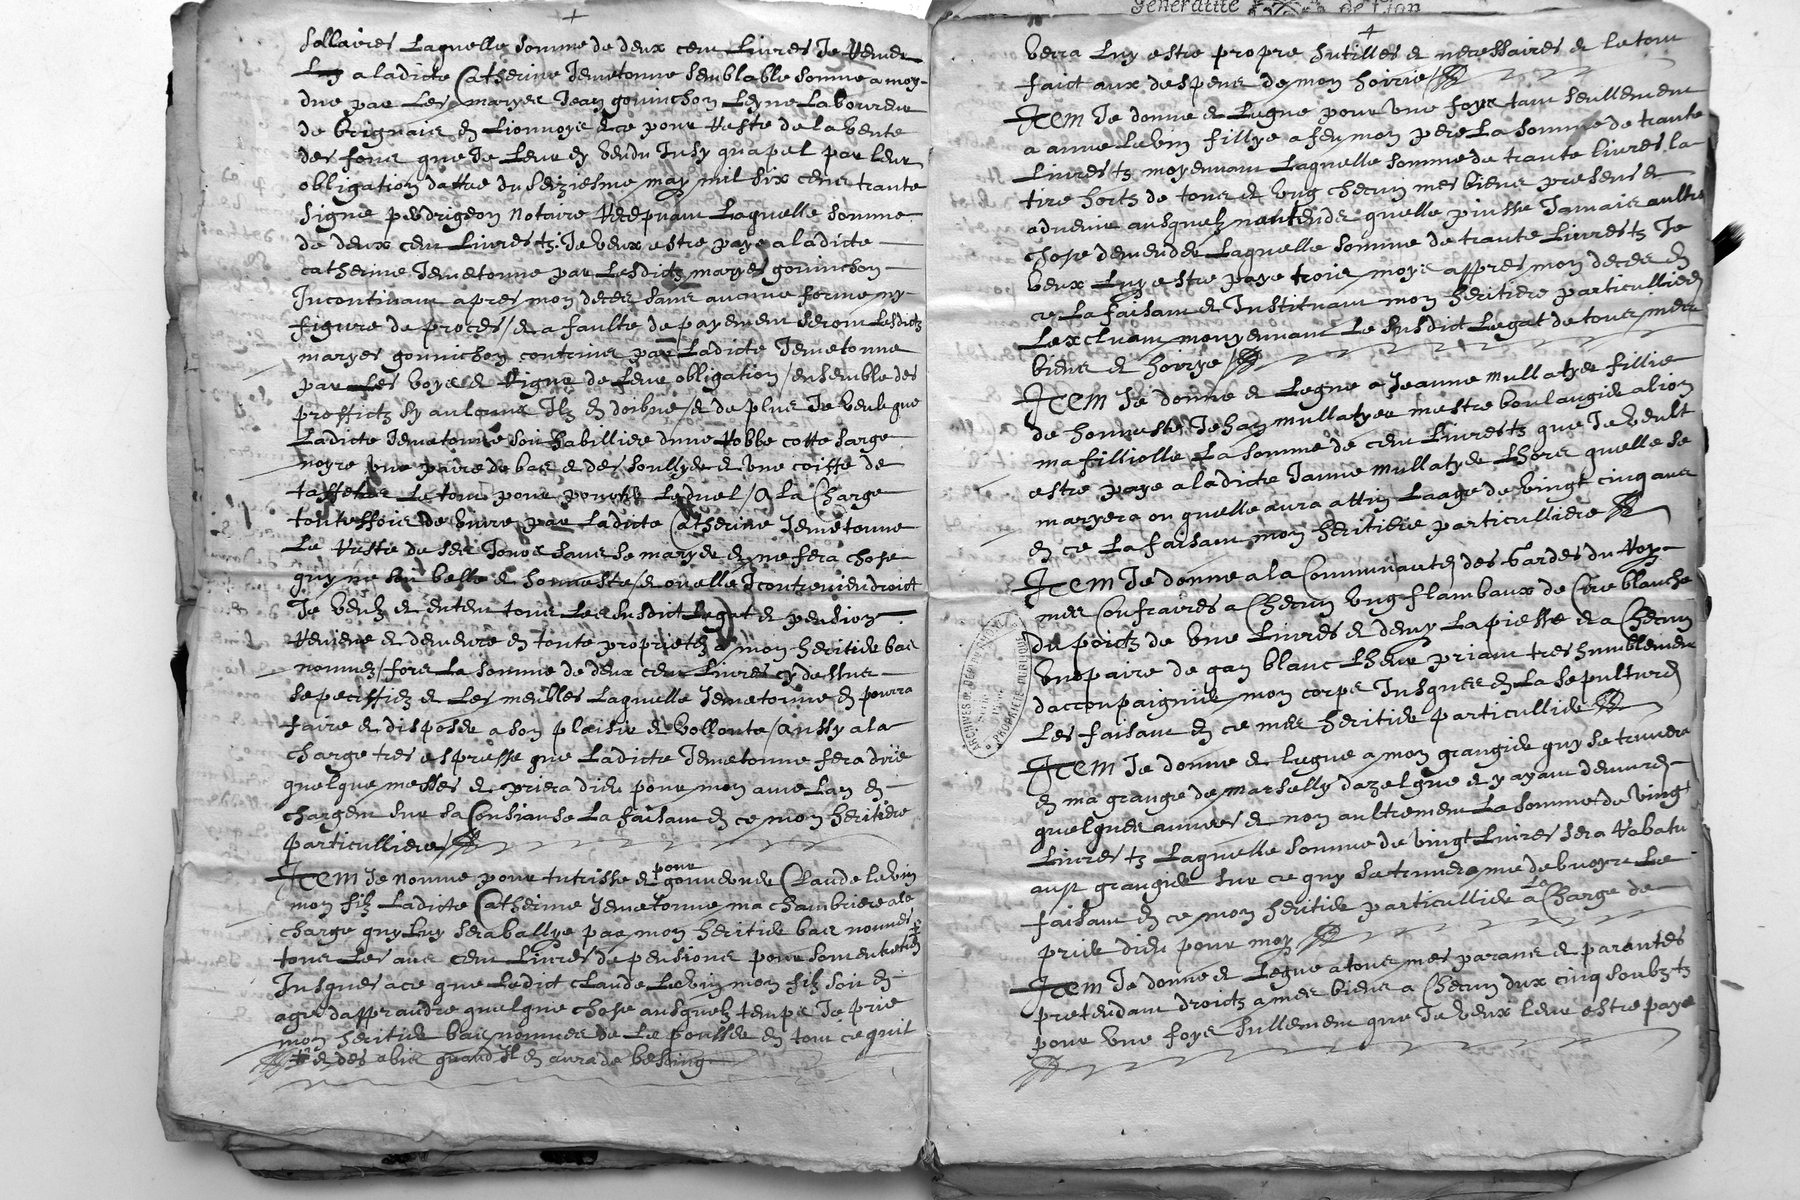 sallaires Laquelle somme de deux cens Livres Je
a ladicte Catherine Jemetonne semblable somme a moy
due par Les maryes Jean gouinchon Leyne Laboureur
de brignais en Lionnoys et ce pour Reste de la vente
des fons que Je Leur ey vendu Jusy quapel par leur
obligation dattee du seiziesme may mil six cens trante
signe notaire Laquelle somme
de deux cens Livres tz Je veux estre paye a ladicte
catherine Jemetonne par Lesdictz maryes gouinchon
Incontinant apres mon deces sans aucune forme ny
figure de proces / et a faulte de payement seront Lesdictz
maryes gouinchon contrins par Ladicte Jemetonne
par Les voyes et Rigueur de Leur obligation / ensemble des
proffictz sy aulcuns Ilz en doibve / et de plus Je veult que
Ladicte Jemetonne soit habilliere dune Robbe cotte sarge
noyre une paire de bas et des soullyer et une coiffe de
taffetas Le tout pour pourter Le duel / A La Charge
touteffois de vivre par Ladicte Catherine Jemetonne
Le Reste de ses Jours sans se maryer et ne fera chose
quy ne soit belle et honneste / et ou elle y contreviendroict
Je veulz et entens tous Les susdict Legat et pension
Reviene et demeure en toute proprietez a mon heritier bas
nommez / fors La somme de deux cens Livres cy dessus
sepeciffiez et Les meubles Laquelle Jemetonne en pourra
faire et disposer a son plaisir et vollonte / Aussy a la
charge tres espresse que Ladicte Jemetonne fera dire
quelque messes et priera dieu pour mon ame Lan en
chargent sur sa Consianse La faisant en ce mon heritiere
particulliere /
Item Je nomme pour tutrisse et pour gouverner Claude Levin
mon filz Ladicte Catherine Jemetonne ma chambriere a la
charge quy Luy sera ballye par mon heritier bas nommer
tous Les ans cent Livres de pensions pour son entretien
Jusques a ce que Ledict Claude Levin mon filz soit en
age dapprandre quelque chose ausquelz temps Je prie
mon heritier bas nommer de Le pousser en tout ce quit
et des abis quand Il en aura de besoing
verra Luy estre propre hutilles et necessaires et le tout
faict aux despens de mon hoirie /
Item Je donne et Legue pour une foys tant seullement
a anne Levin fillye a feu mon pere La somme de trante
Livres tz moyennant Laquelle somme de trante livres la
tire horts de tous et ung checun mes biens presens et
advenir ausquelz nantends quelle puisse Jamais aultre
chose demander Laquelle somme de trante Livres tz Je
veux Luy estre paye trois moys appres mon deces en
ce La faisant et Instituant mon heritiere particulliere
Lexcluant mouyennant Le susdict Legat de tous mes
biens et hoirye /
Item Je donne et Legue a Jeanne mullatyer fillie
de honneste Jehan mullatyer mestre boulangier a lion
ma filliolle La somme de cent Livres tz que Je veult
estre paye a ladicte Janne mullatyer Lhors quelle se
maryera ou quelle aura attin Laage de vingt cinq ans
en ce La faisant mon heritiere particulliere
Item Je donne a la Communautes des Gardes du Roy
mes Confraires a Checun ung flambaux de Cire blanche
du poictz de une Livres et demy La piesse et a Checun
une paire de gan blanc Lheur priant tres humblement
daccoupaignier mon corps Jusques en La sepulture
Les faisant en ce mes heritier particullier
Item Je donne et Legue a mon grangier quy se truvera
en ma grange de marselly dazelgue et y ayant demure
quelques annees et non aultrement La somme de vingt
Livres tz Laquelle somme de vingt Livres sera Rabatu
audt grangier sur ce quy se truvera me debvoyr Le
faisant en ce mon heritier particullier a La Charge de
prier dieu pour moy
Item Je donne et Legue a tous mes parans et parantes
pretendant droictz a mes biens a Checun dux cinq soubz tz
pour une foys sullement que Je veux leur estre paye